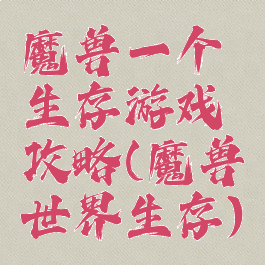 魔兽一个
生存游戏
攻略(魔兽
世界生存)